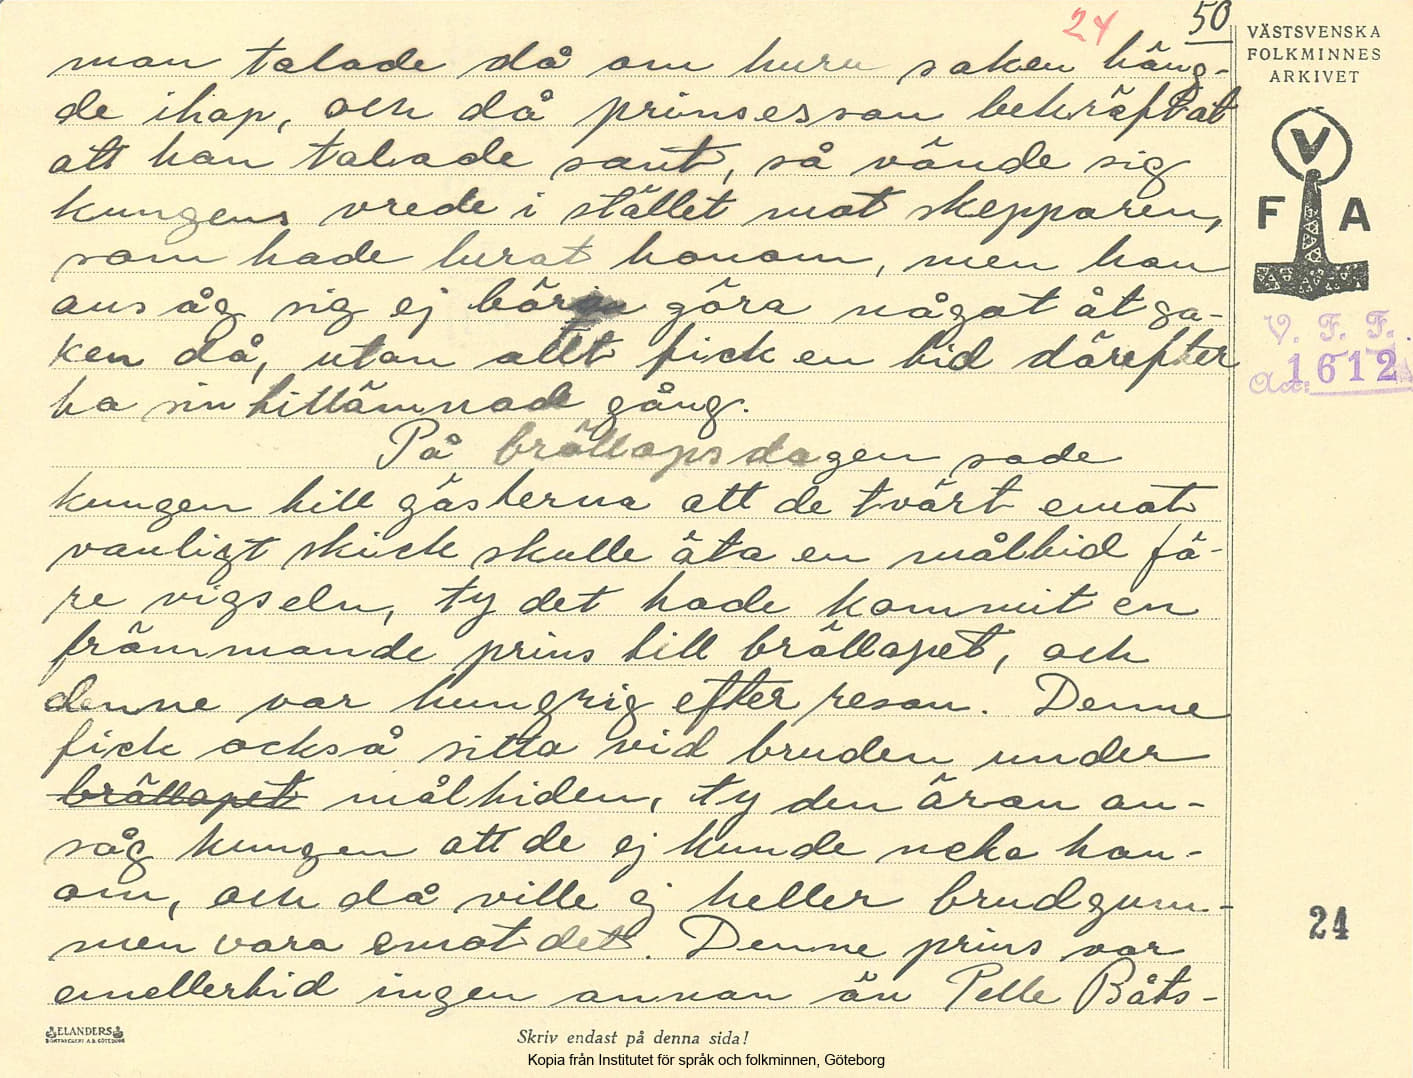 24 50
man talade då om huru saken häng-
de ihop, och då prinsessan bekräftat
att han talade sant, så vände sig
kungens vrede i stället mot skepparen,
som hade lurat honom, men han
ansåg sig ej böra göra något åt sa-
ken då, utan allt fick en tid därefter
ha sin tillämnade gång.
På bröllopsdagen sade
kungen till gästerna att de tvärt emot
vanligt skick skulle äta en måltid fö-
re vigseln, ty det hade kommit en
främmande prins till bröllopet, och
denne var hungrig efter resan. Denne
fick också sitta vid bruden under
bröllopet måltiden, ty den äran an-
såg kungen att de ej kunde neka hon-
om, och då ville ej heller brudgum-
men vara emot det. Denne prins var
emellertid ingen annan än Pelle Båts-
VÄSTSVENSKA
FOLKMINNES
ARKIVET
V
F A
V. F. F.
Acc: 1612
24
ELANDERS
BOKTRYCKERI A.B. GÖTEBORG
Skriv endast på denna sida!
Kopia från Institutet för språk och folkminnen, Göteborg